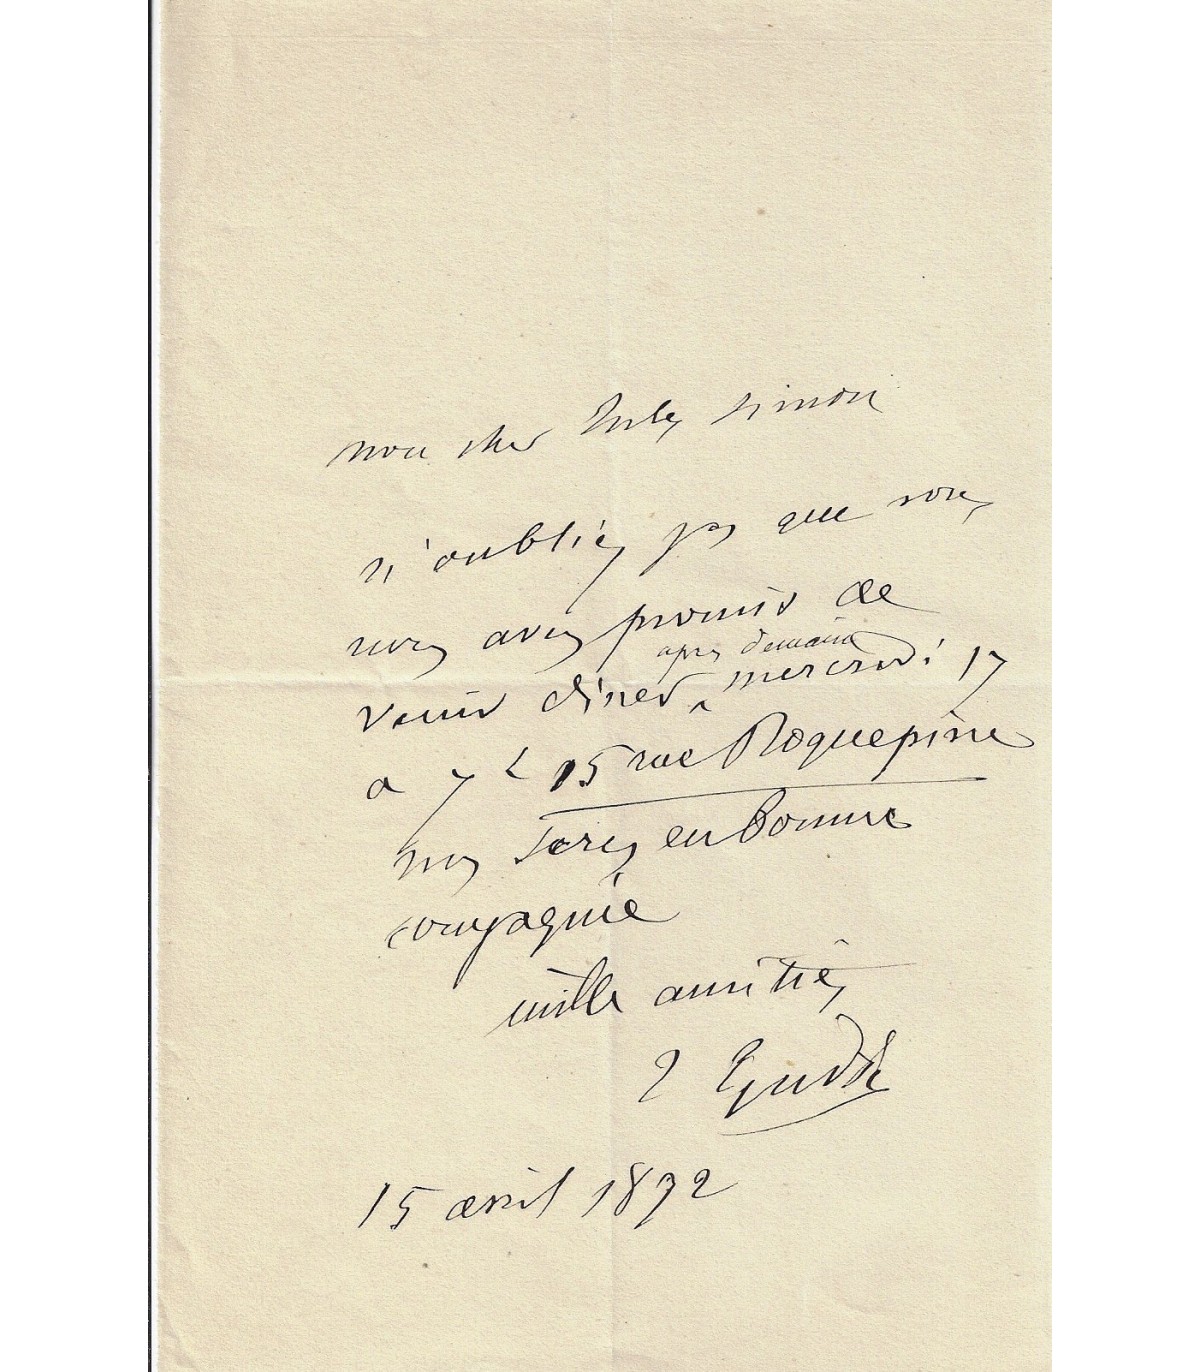 mon cher Jules Simon
n'oubliez pas que vous
nous avez promis de
venir diner après demain mercredi 17
a 7 h 15 rue Roquepine
vous serez en bonne
compagnie
mille amitiés
15 avril 1872